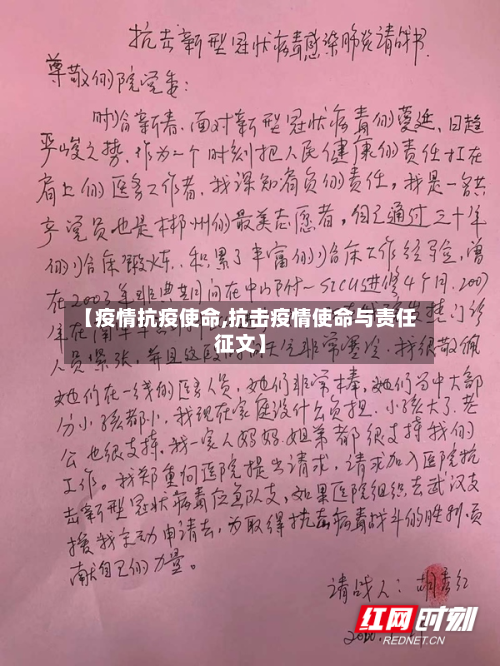 抗击新型冠状病毒感染肺炎请战书
尊敬的院党委:
时临新春,面对新型冠状病毒的蔓延,日趋
严峻之势,作为一个时刻把人民健康的责任扛在
肩上的医务工作者,我深知肩负的责任,我是一名共
产党员也是郴州的最美志愿者,自己通过三十年
的临床锻炼,积累了丰富的临床工作经验,曾
在2003年非典期间在中山 SICU进修4个月,2007
【疫情抗疫使命,抗击疫情使命与责任
征文】
人员紧张,并且 天气非常寒冷,我很敬佩
她们在一线的医务人员,她们非常棒,她们当中大部
分小孩都小,我现在家庭没什么负担,小孩大了,老
公也很支持,我一家人妈妈.姐弟都很支持我的
工作。我郑重向医院提出请求,请求加入医院抗
击新型冠状病毒应急队支,如果医院组织去武汉支
援我主动申请去,为取得抗击病毒战斗的胜利,贡
献自己的力量。
请战人:胡
红网时刻
REDNET.CN
2020